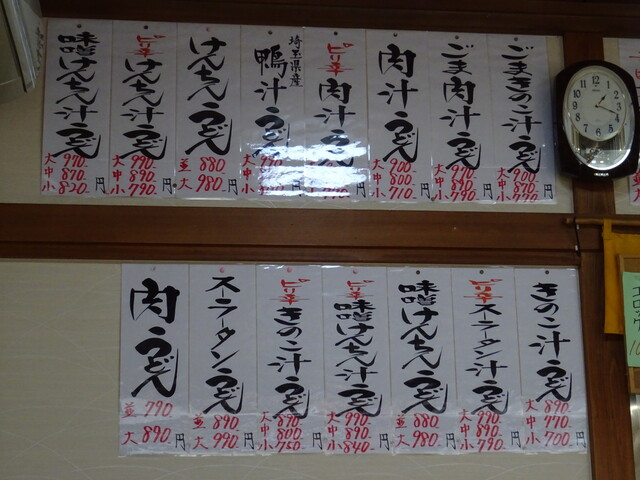 ごまきのこ汁うどん
大
中
小 770- 円
ごま肉汁うどん
大 970-
中 890-
小 790- 円
肉汁うどん
大 900-
中 800-
小 710- 円
ピリ辛
肉汁うどん
円
埼玉県産
鴨汁うどん
大
中
小
円
けんちんうどん
並 880-
大 780- 円
ピリ辛
けんちん汁うどん
大 990-
中 890-
小 790- 円
味噌けんちん汁うどん
大 970-
中 870-
小 820- 円
きのこ汁うどん
大 890-
中 770-
小 700- 円
ピリ辛
スーラータン汁うどん
大 990-
中 890-
小 790- 円
味噌けんちんうどん
並 880-
大 980- 円
ピリ辛
味噌けんちん汁うどん
大 990-
中 890-
小 840- 円
ピリ辛
きのこ汁うどん
大 890-
中 800-
小 750- 円
スーラータンうどん
並 890-
大 990- 円
肉うどん
並 790-
大 890- 円